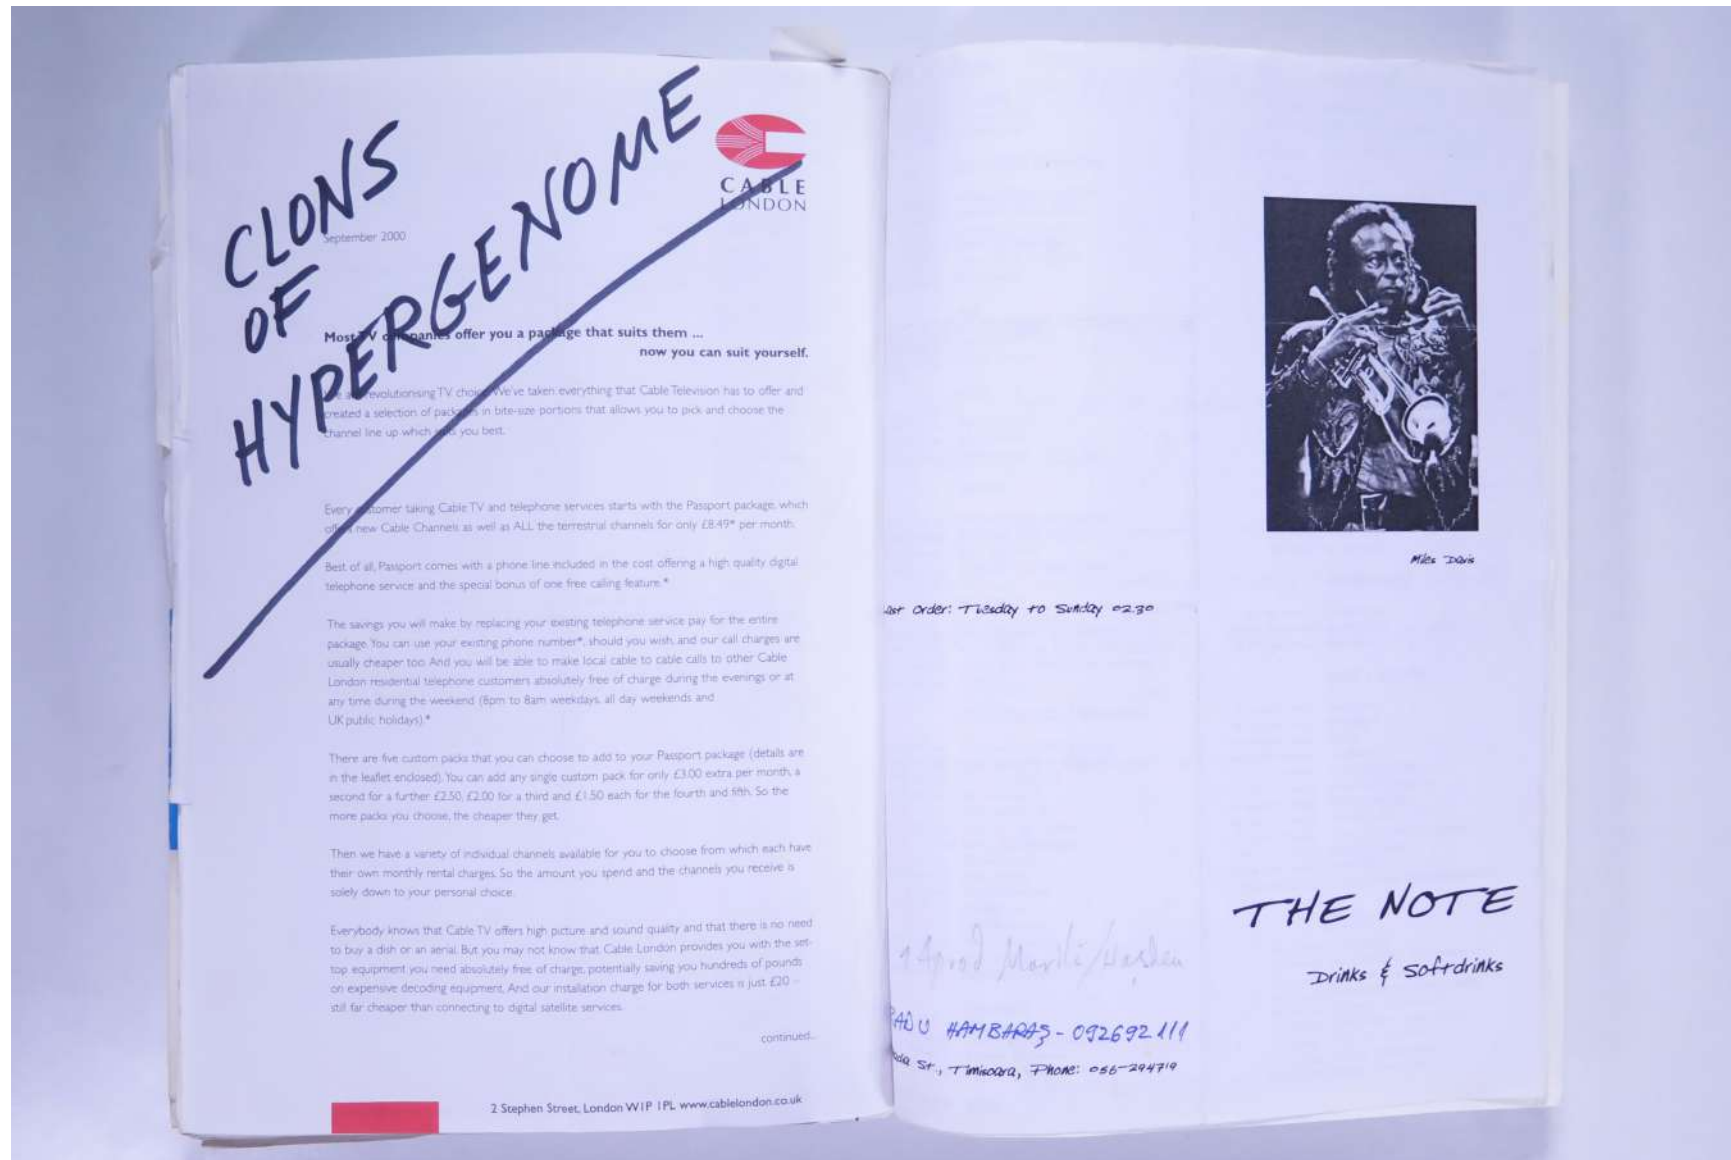 CLONS
OF
HYPERGENOME
CABLE
LONDON
September 2000
Most TV companies offer you a package that suits them ...
now you can suit yourself.
We are revolutionising TV choice. We've taken everything that Cable Television has to offer and
created a selection of packages in bite-size portions that allows you to pick and choose the
channel line up which suits you best.
Every customer taking Cable TV and telephone services starts with the Passport package, which
new Cable Channels as well as ALL the terrestrial channels for only £8.49* per month.
Best of all, Passport comes with a phone line included in the cost offering a high quality digital
telephone service and the special bonus of one free calling feature.*
The savings you will make by replacing your existing telephone service pay for the entire
package. You can use your existing phone number*, should you wish, and our call charges are
usually cheaper too. And you will be able to make local cable to cable calls to other Cable
London residential telephone customers absolutely free of charge during the evenings or at
any time during the weekend (6pm to 8am weekdays, all day weekends and
UK public holidays).*
There are five custom packs that you can choose to add to your Passport package (details are
in the leaflet enclosed). You can add any single custom pack for only £3.00 extra per month, a
second for a further £2.50, £2.00 for a third and £1.50 each for the fourth and fifth. So the
more packs you choose, the cheaper they get.
Then we have a variety of individual channels available for you to choose from which each have
their own monthly rental charges. So the amount you spend and the channels you receive is
solely down to your personal choice.
Everybody knows that Cable TV offers high picture and sound quality and that there is no need
to buy a dish or an aerial. But you may not know that Cable London provides you with the set-
top equipment you need absolutely free of charge, potentially saving you hundreds of pounds
on expensive decoding equipment. And our installation charge for both services is just £20 -
still far cheaper than connecting to digital satellite services.
continued..
2 Stephen Street, London W1P 1PL www.cablelondon.co.uk
Miles Davis
Last Order: Tuesday to Sunday 02.30
THE NOTE
Drinks & Softdrinks
RADU HAMBARAȘ - 092692111
St., Timisoara, Phone: 056-294719